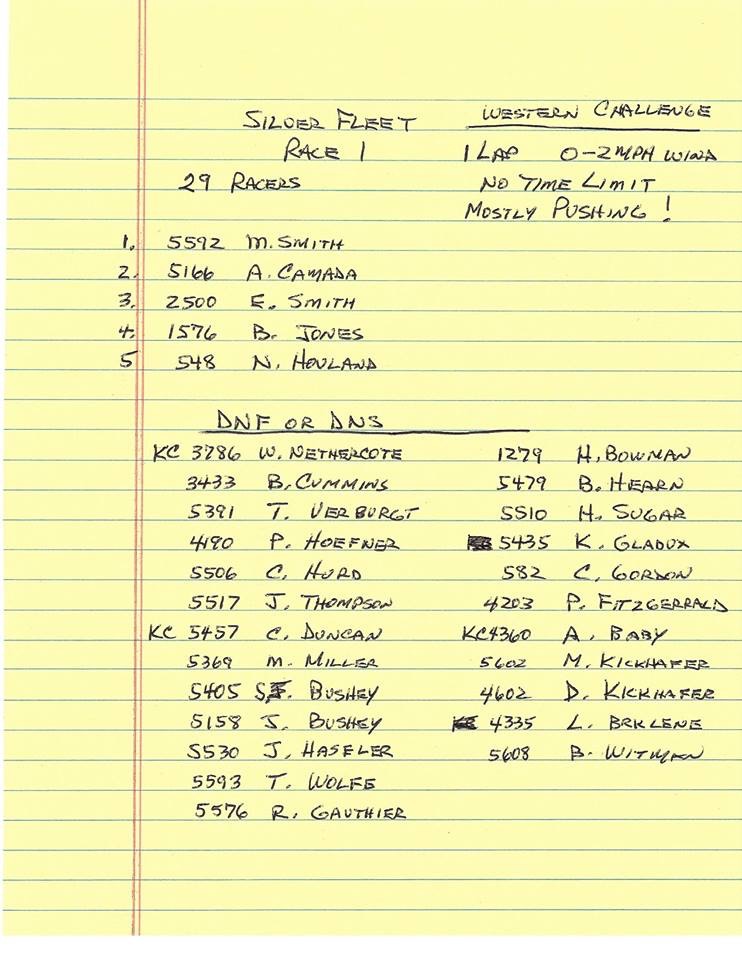 SILVER FLEET WESTERN CHALLENGE
RACE 1 1 LAP 0-2 MPH WIND
29 RACERS NO TIME LIMIT
MOSTLY PUSHING!
1. 5592 M. SMITH
2. 5166 A. CAMADA
3. 2500 E. SMITH
4. 1576 B. JONES
5 548 N. HOVLAND
DNF OR DNS
KC 3786 W. NETHERCOTE 1279 H. BOWMAN
3433 B. CUMMINS 5479 B. HEARN
5391 T. VERBURGT 5510 H. SUGAR
4190 P. HOEFNER 5435 K. GLADUX
5506 C. HURD 582 C. GORDON
5517 J. THOMPSON 4203 P. FITZGERRALD
KC 5457 C. DUNCAN KC4360 A. BABY
5369 M. MILLER 5602 M. KICKHAFER
5405 S. BUSHEY 4602 D. KICKHAFER
5158 J. BUSHEY 4335 L. BRKLENE
5530 J. HASELER 5608 B. WITMAN
5593 T. WOLFE
5576 R. GAUTHIER